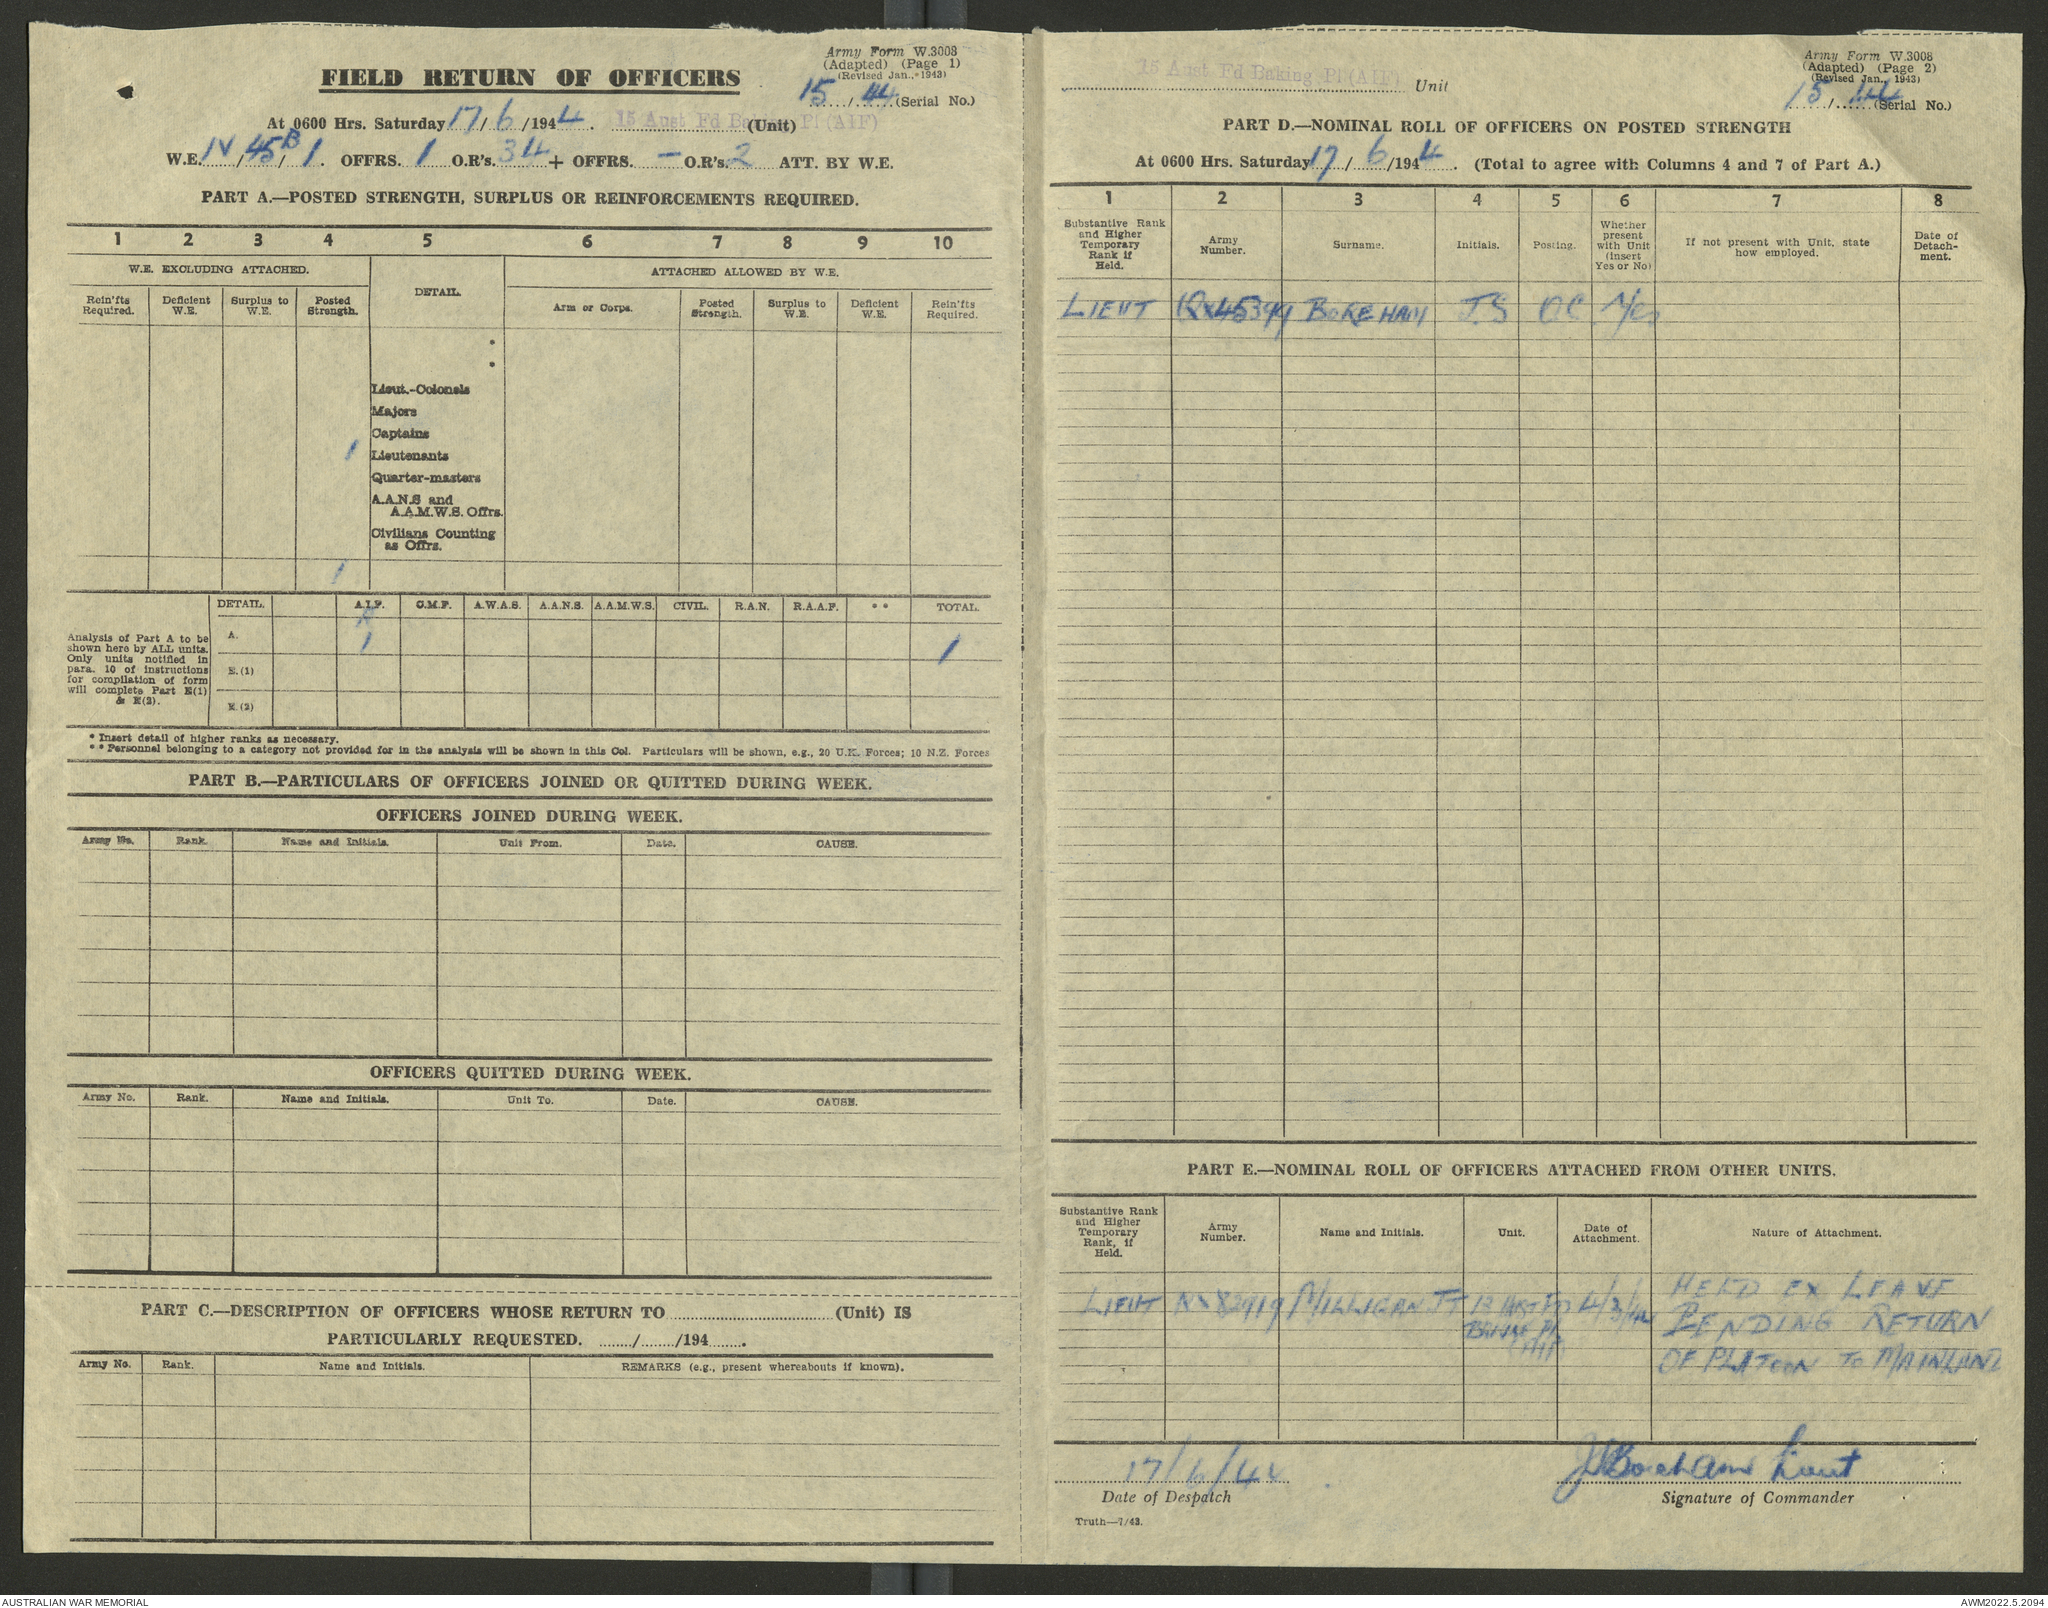 Army Form W.3008
(Adapted) (Page 1)
(Revised Jan., 1943)
FIELD RETURN OF OFFICERS
15/44 (Serial No.)
At 0600 Hrs. Saturday 17/6/1944. 15 Aust Fd Baking Pl (AIF) (Unit)
W.E. IV/45B/1. OFFRS. 1 O.R's. 34 + OFFRS. — O.R's. 2 ATT. BY W.E.
PART A.—POSTED STRENGTH, SURPLUS OR REINFORCEMENTS REQUIRED.
1 2 3 4 5 6 7 8 9 10
W.E. EXCLUDING ATTACHED. DETAIL. ATTACHED ALLOWED BY W.E.
Rein'fts Required. Deficient W.E. Surplus to W.E. Posted Strength. Arm or Corps. Posted Strength. Surplus to W.E. Deficient W.E. Rein'fts Required.
*
*
Lieut.-Colonels
Majors
Captains
1 Lieutenants
Quarter-masters
A.A.N.S and
A.A.M.W.S. Offrs.
Civilians Counting
as Offrs.
1
DETAIL. A.I.F. C.M.F. A.W.A.S. A.A.N.S. A.A.M.W.S. CIVIL. R.A.N. R.A.A.F. * * TOTAL.
Analysis of Part A to be shown here by ALL units. Only units notified in para. 10 of instructions for compilation of form will complete Part E(1) & E(2).
A. 1 1
E.(1)
E.(2)
* Insert detail of higher ranks as necessary.
* * Personnel belonging to a category not provided for in the analysis will be shown in this Col. Particulars will be shown, e.g., 20 U.K. Forces; 10 N.Z. Forces
PART B.—PARTICULARS OF OFFICERS JOINED OR QUITTED DURING WEEK.
OFFICERS JOINED DURING WEEK.
Army No. Rank. Name and Initials. Unit From. Date. CAUSE.
OFFICERS QUITTED DURING WEEK.
Army No. Rank. Name and Initials. Unit To. Date. CAUSE.
PART C.—DESCRIPTION OF OFFICERS WHOSE RETURN TO (Unit) IS
PARTICULARLY REQUESTED. ....../....../194......
Army No. Rank. Name and Initials. REMARKS (e.g., present whereabouts if known).
Army Form W.3008
(Adapted) (Page 2)
(Revised Jan., 1943)
15 Aust Fd Baking Pl (AIF) Unit
15/44 (Serial No.)
PART D.—NOMINAL ROLL OF OFFICERS ON POSTED STRENGTH
At 0600 Hrs. Saturday 17/6/1944. (Total to agree with Columns 4 and 7 of Part A.)
1 2 3 4 5 6 7 8
Substantive Rank and Higher Temporary Rank if Held. Army Number. Surname. Initials. Posting. Whether present with Unit (Insert Yes or No) If not present with Unit, state how employed. Date of Detach-ment.
LIEUT QX45399 BOREHAM J.S OC Yes
PART E.—NOMINAL ROLL OF OFFICERS ATTACHED FROM OTHER UNITS.
Substantive Rank and Higher Temporary Rank, if Held. Army Number. Name and Initials. Unit. Date of Attachment. Nature of Attachment.
LIEUT NX82919 MILLIGAN 4/3/44 HELD EX LEAVE
PENDING RETURN
OF PLATOON TO MAINLAND
17/6/44 JSBoreham Lieut
Date of Despatch Signature of Commander
Truth—7/43.
AUSTRALIAN WAR MEMORIAL AWM2022.5.2094